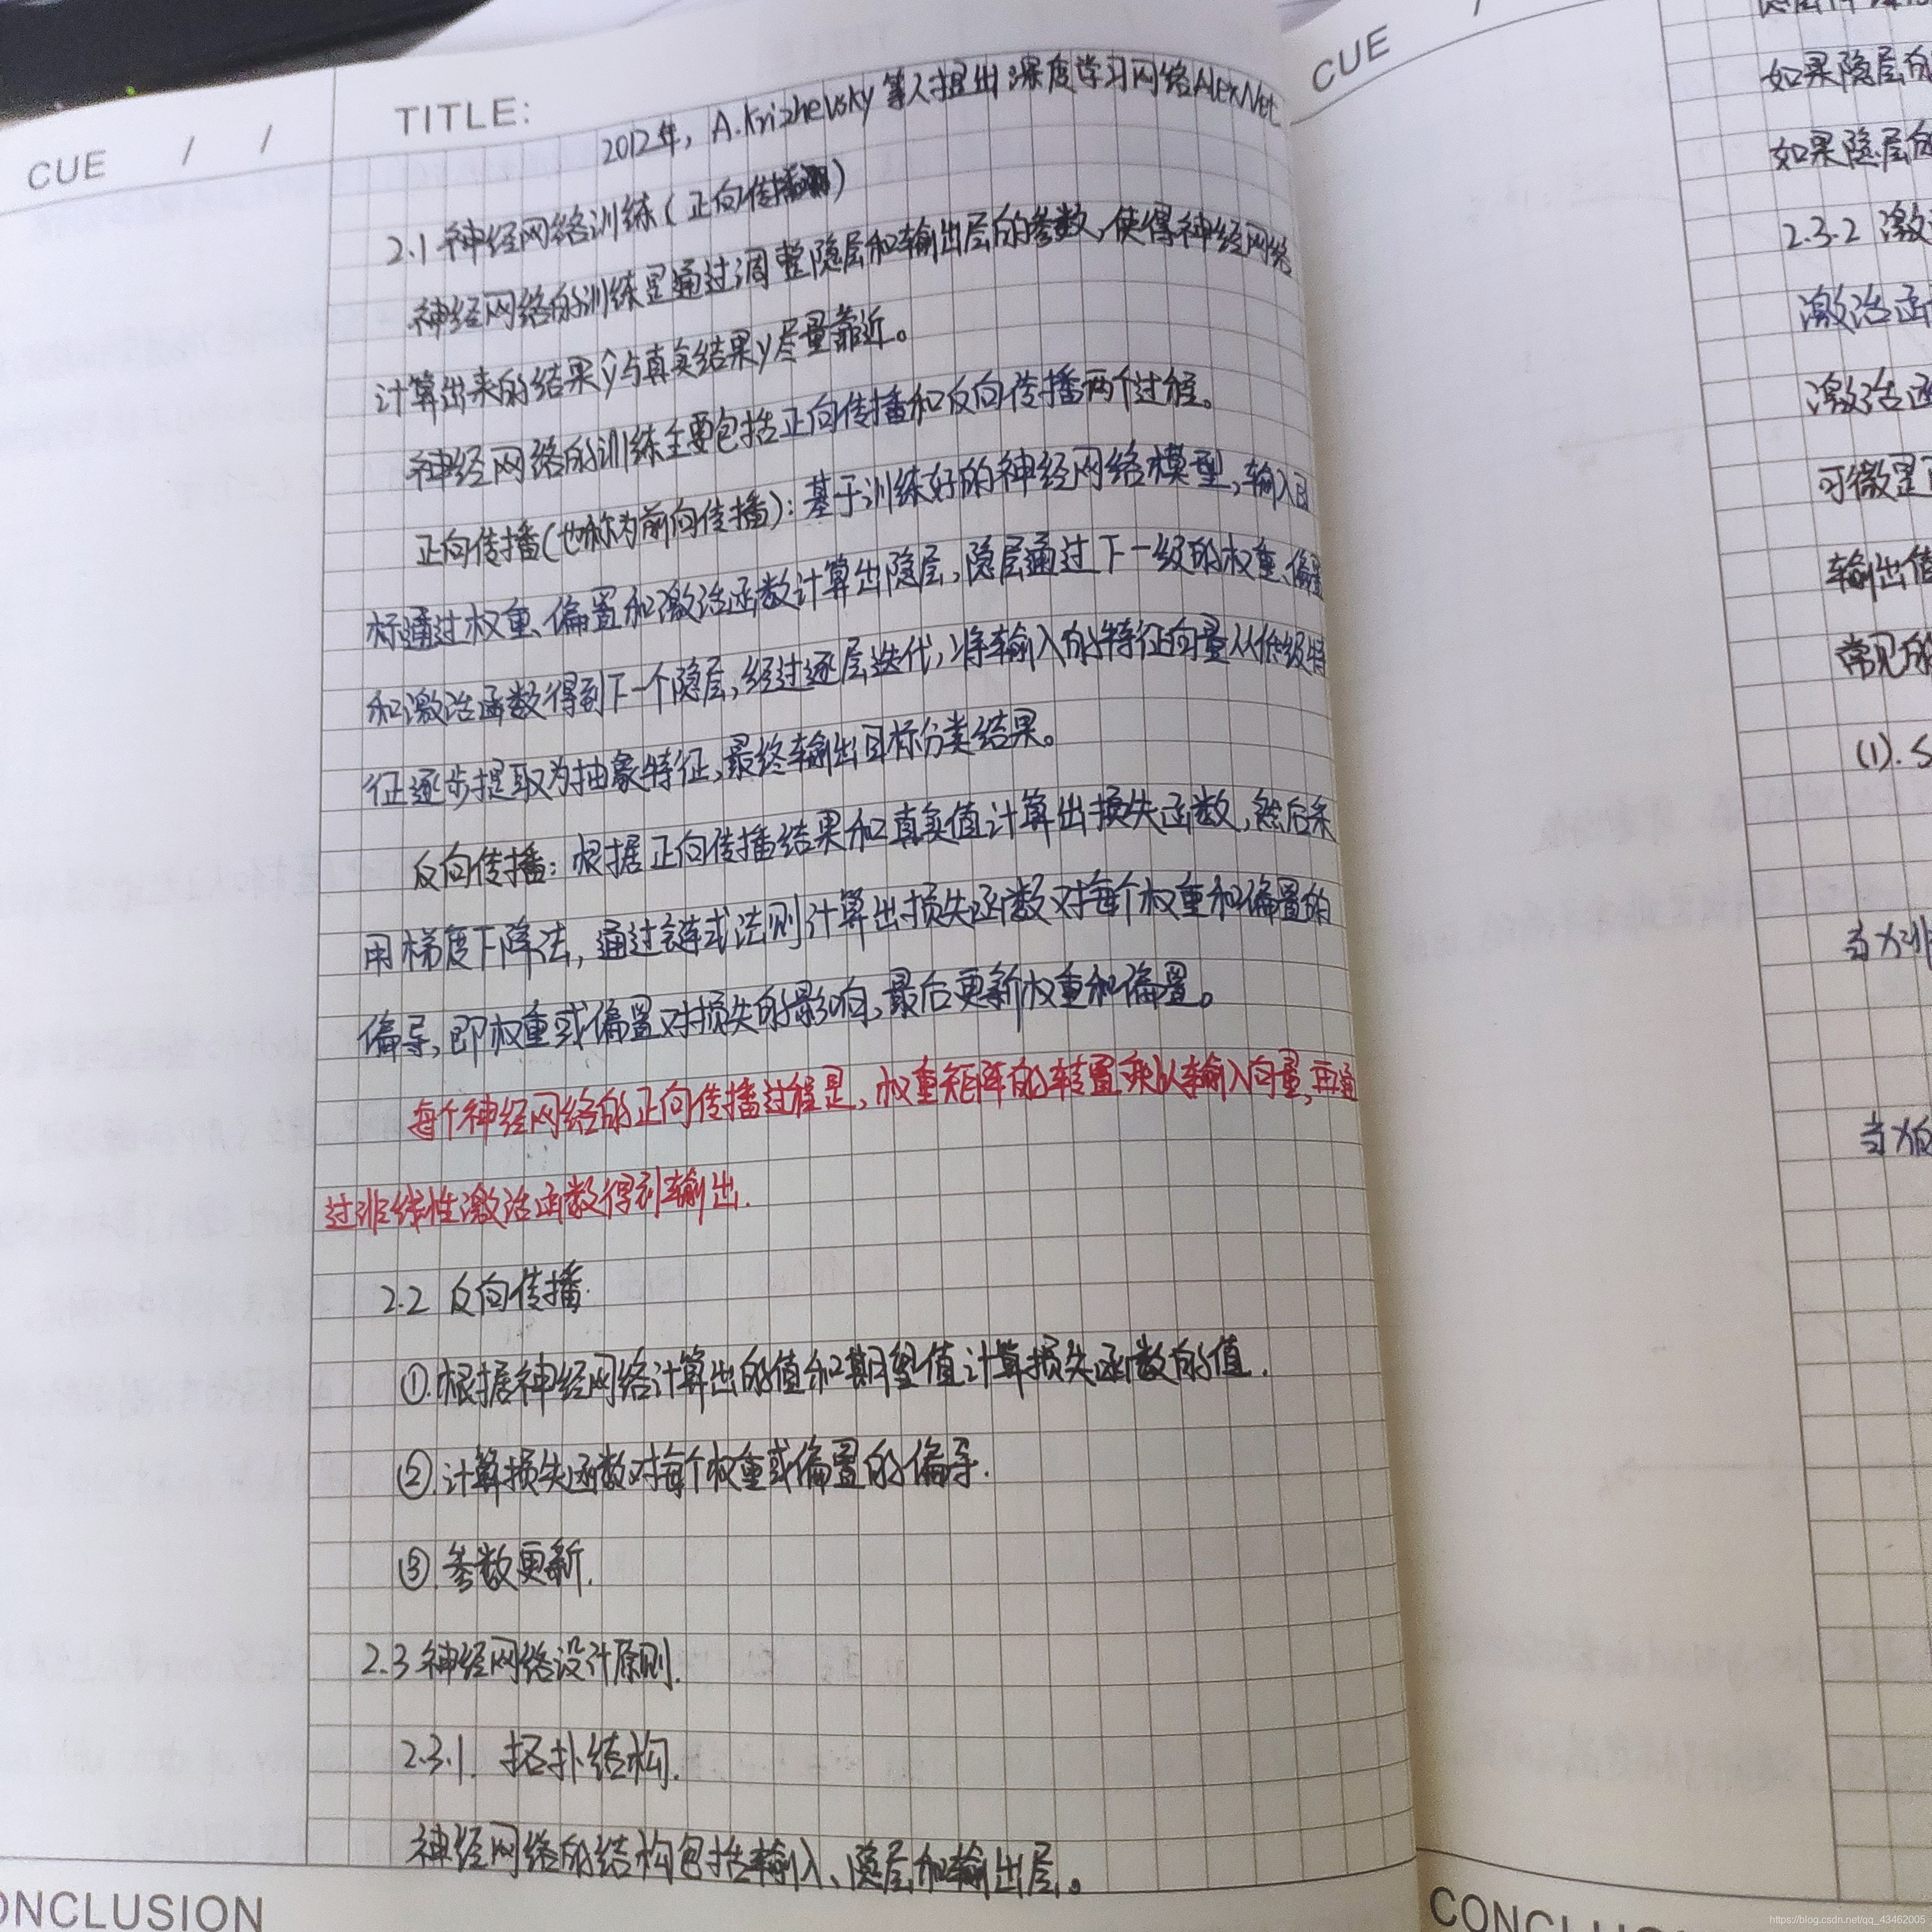 CUE / /
TITLE:
2012年, A.Krizhevsky 等人提出深度学习网络AlexNet
2.1 神经网络训练(正向传播)
神经网络的训练是通过调整隐层和输出层的参数,使得神经网络
计算出来的结果ŷ与真实结果y尽量靠近。
神经网络的训练主要包括正向传播和反向传播两个过程。
正向传播(也称为前向传播):基于训练好的神经网络模型,输入目
标通过权重、偏置和激活函数计算出隐层,隐层通过下一级的权重、偏置
和激活函数得到下一个隐层,经过逐层迭代,将输入的特征向量从低级特
征逐步提取为抽象特征,最终输出目标分类结果。
反向传播:根据正向传播结果和真实值计算出损失函数,然后采
用梯度下降法,通过链式法则计算出损失函数对每个权重和偏置的
偏导,即权重或偏置对损失的影响,最后更新权重和偏置。
每个神经网络的正向传播过程是,权重矩阵的转置乘以输入向量,再通
过非线性激活函数得到输出.
2.2 反向传播.
①.根据神经网络计算出的值和期望值计算损失函数的值.
②.计算损失函数对每个权重或偏置的偏导.
③.参数更新.
2.3 神经网络设计原则.
2.3.1. 拓扑结构.
神经网络的结构包括输入、隐层和输出层。
ONCLUSION
CUE /
如果隐层的
如果隐层的
2.3.2 激
激活函
激活函
可微是
输出值
常见的
(1). S
当x非
当x
CONCLU
https://blog.csdn.net/qq_43462005